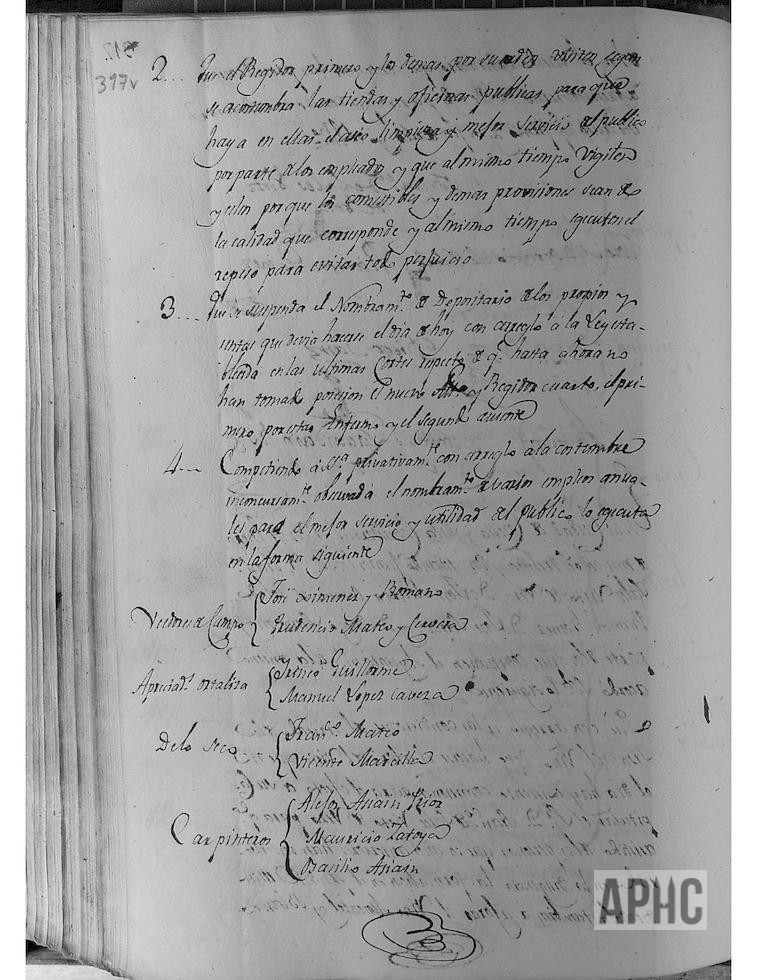 317v
2... Que el Regidor primero y los demas por su orden visiten segun
se acostumbra las tiendas y oficinas publicas para que
haya en ellas el aseo limpieza y mejor servicio al publico
por parte de los empleados y que al mismo tiempo vigilen
y celen por que los comestibles y demas provisiones sean de
la calidad que corresponde y al mismo tiempo egecuten el
repeso para evitar todo perjuicio
3... Que se suspenda el Nombram.to de Depositario de los propios y
rentas que devia hacerse el dia de hoy con arreglo á la Ley esta-
blecida en las ultimas Cortes respecto de q.e hasta ahora no
han tomado posesion el nuevo y Regidor cuarto, el pri-
mero por estar Enfermo y el segundo ausente
4... Competiendo á S.a privativam.te con arreglo á la costumbre
inconcusam.te observada el nombram.to de varios empleos anua-
les para el mejor servicio y utilidad del publico lo egecuta
en la forma siguiente
Veedores de Campo { José Ximenez y Romano
Prudencio Mateo y Cervera
Apreciad.s ortaliza { Irineo Guillorme
Manuel Lopez Caveza
De lo Seco { Fran.co Mateo
Vicente Marcilla
Carpinteros { Alejos Anain Prior
Mauricio Zatoya
Basilio Anain
APHC